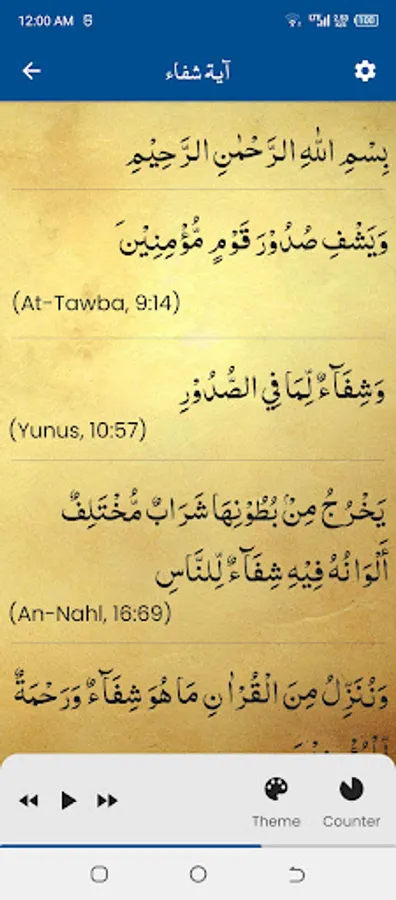 12:00 AM
100
آية شفاء
بِسْمِ اللهِ الرَّحْمٰنِ الرَّحِيْمِ
وَيَشْفِ صُدُوْرَ قَوْمٍ مُّؤْمِنِيْنَ
(At-Tawba, 9:14)
وَشِفَآءٌ لِّمَا فِي الصُّدُوْرِ
(Yunus, 10:57)
يَخْرُجُ مِنْ بُطُوْنِهَا شَرَابٌ مُّخْتَلِفٌ
أَلْوَانُهُ فِيْهِ شِفَآءٌ لِّلنَّاسِ
(An-Nahl, 16:69)
وَنُنَزِّلُ مِنَ الْقُرْاٰنِ مَا هُوَ شِفَآءٌ وَرَحْمَةٌ
Theme Counter